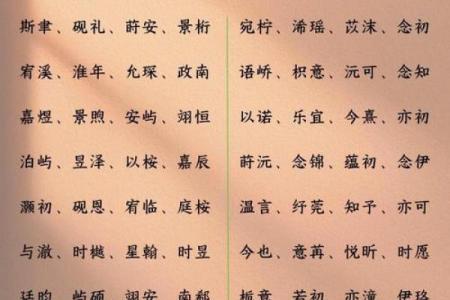 斯聿、砚礼、莳安、景桁 宛柠、浠瑶、苡沫、念初
宥溪、淮年、允琛、政南 语峤、枳意、沅可、念知
嘉煜、景煦、安屿、翊恒 以诺、乐宜、今熹、亦初
泊屿、昱泽、以桉、嘉辰 莳沅、念锦、蕴初、念伊
灏初、砚恩、宥临、庭桉 温言、纾莞、知予、亦可
与澈、时樾、星翰、时昱 今也、意苒、悦昕、时愿
廷昀、屿硕、翊安、南郗 栀意、若初、亦潼、伊珞